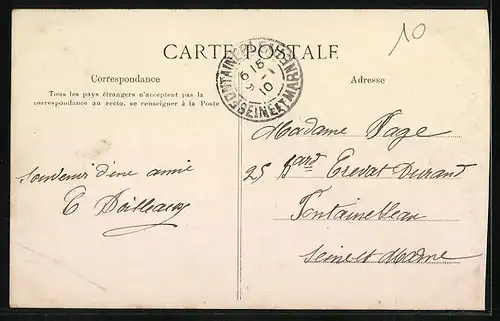 10
CARTE POSTALE
FONTAINEBLEAU
SEINE ET MARNE
6 15
9 - 1
10
Correspondance
Adresse
Tous les pays étrangers n'acceptent pas la
correspondance au recto, se renseigner à la Poste
Madame Page
25 Bard Trevat Durand
Fontainebleau
Seine et Marne
Souvenir d'une amie